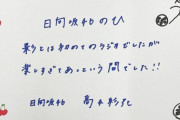 日向坂46のひ
影とは初めてのラジオでしたが
楽しすぎてあっという間でした!!
日向坂46 髙本彩花